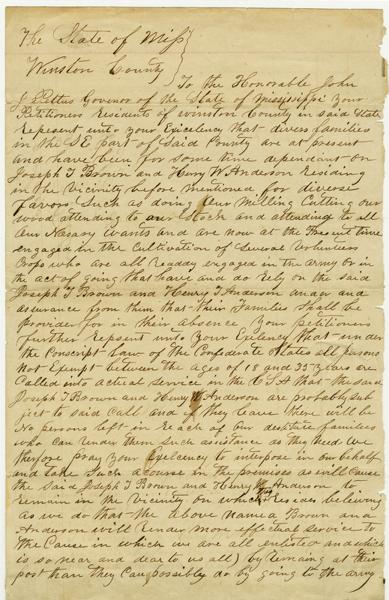 The State of Miss
Winston County
To the Honorable John
J. Pettus Govenor of the State of Mississippi Your
Petitioners Residents of Winston County in said State
Repesent unto your Exelency that divers families
in the S E part of Said County are at present
and have been for some time dependant on
Joseph T Brown and Henry W Anderson Residing
in the vicinity before mentioned for diverse
favors Such as doing Our Milling Cutting our
wood attending to our Stock and attending to all
Our Nesary wants and are now at the Present time
engaged in the Cultivation of Several Volunteers
Crops who are all Readdy engaged in the army or in
the act of going that have and do Rely on the said
Joseph T Brown and Henry T Anderson under and
assurance from them that their Families Shall be
Provider for in their absence Your petitioners
further Repsent unto Your Exelency that under
the Conscript Law of the Confederate States all persons
Not Exempt between the ages of 18 and 35 years are
Called into actual Service in the C S A that the said
Joseph T Brown and Henry W Anderson are probably sub
ject to said Call and if they leave there will be
No persons left in Reach of Our destitute families
who can Render them Such assistance as they Need We
therfore pray your Exelency to interpose in our behalf
and take Such a course in the premises as will cause
the Said Joseph T Brown and Henry W Anderson to
Remain in the vicinity on which they Resides believing
as we do that the above named Brown and
Anderson will Render more effectual Service to
the Cause in which we are all enlisted and which
is so near and dear to us all) by Remaing at their
post than they Can possibly do by going to the army